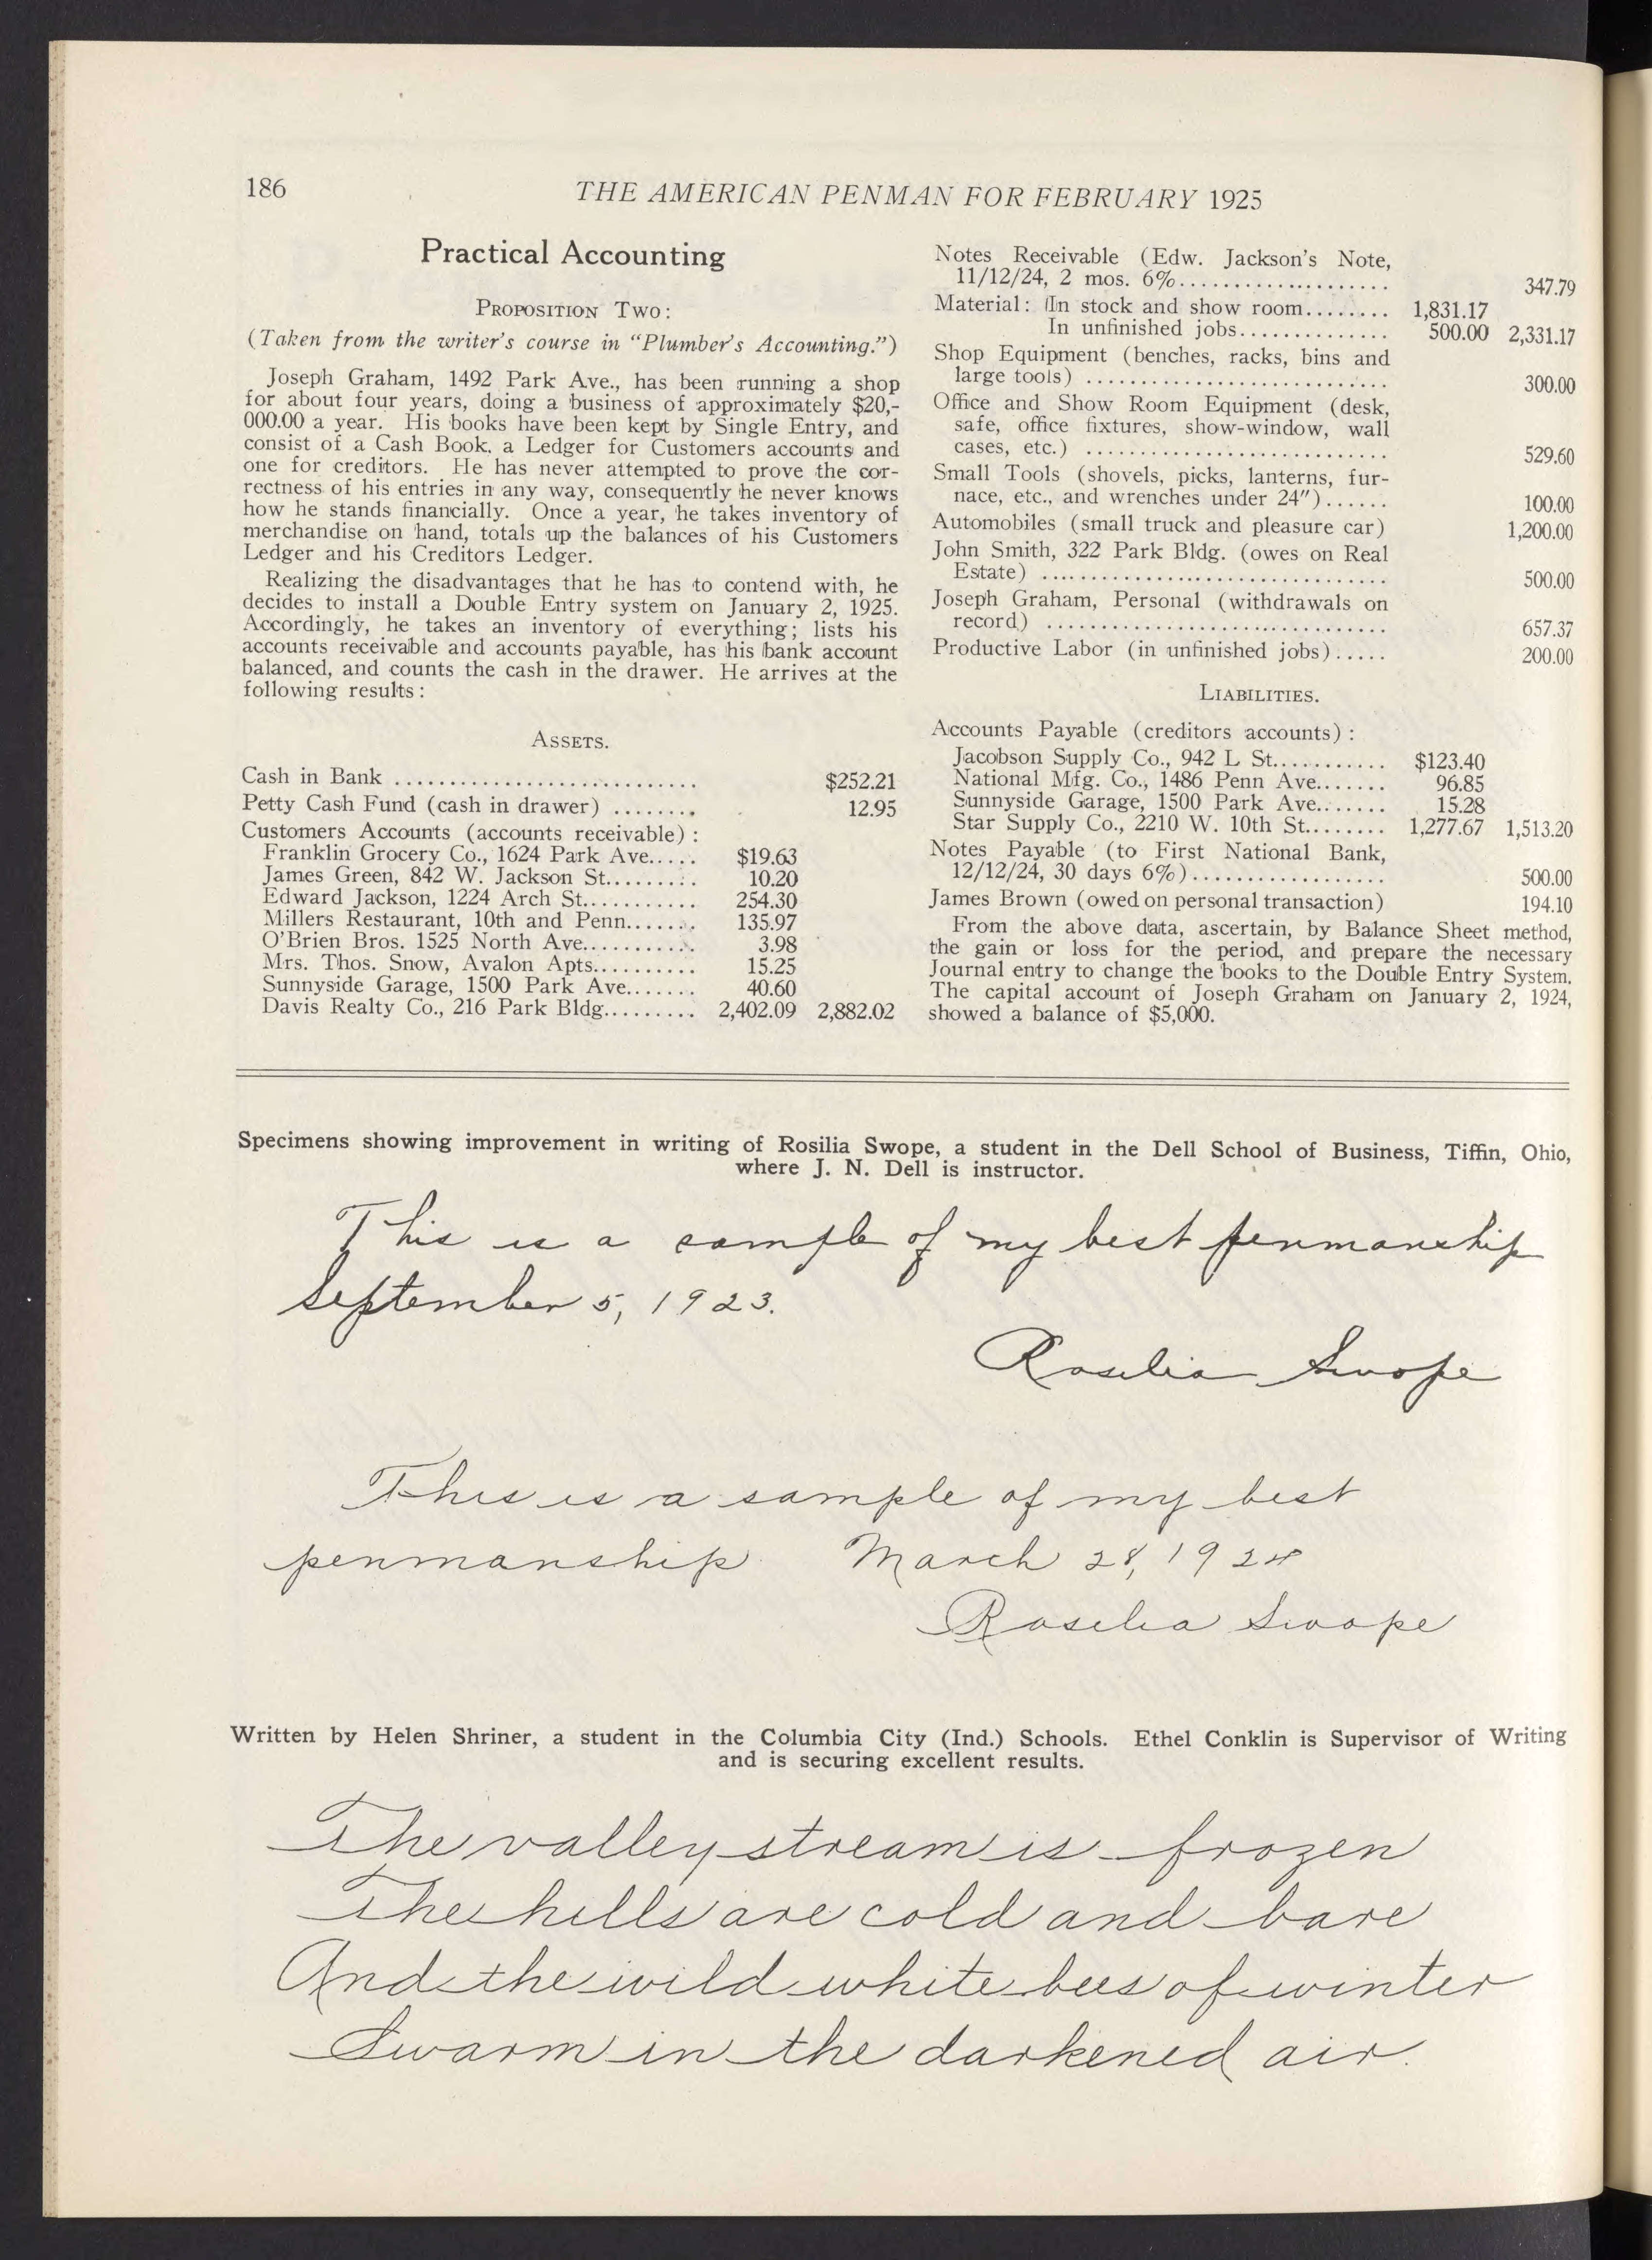 186
THE AMERICAN PENMAN FOR FEBRUARY 1925
Practical Accounting
PROPOSITION TWO:
(Taken from the writer's course in "Plumber's Accounting.")
Joseph Graham, 1492 Park Ave., has been running a shop
for about four years, doing a business of approximately $20,-
000.00 a year. His books have been kept by Single Entry, and
consist of a Cash Book, a Ledger for Customers accounts and
one for creditors. He has never attempted to prove the cor-
rectness of his entries in any way, consequently he never knows
how he stands financially. Once a year, he takes inventory of
merchandise on hand, totals up the balances of his Customers
Ledger and his Creditors Ledger.
Realizing the disadvantages that he has to contend with, he
decides to install a Double Entry system on January 2, 1925.
Accordingly, he takes an inventory of everything; lists his
accounts receivable and accounts payable, has his bank account
balanced, and counts the cash in the drawer. He arrives at the
following results:
ASSETS.
Cash in Bank ........................... $252.21
Petty Cash Fund (cash in drawer) ........ 12.95
Customers Accounts (accounts receivable) :
Franklin Grocery Co., 1624 Park Ave..... $19.63
James Green, 842 W. Jackson St......... 10.20
Edward Jackson, 1224 Arch St........... 254.30
Millers Restaurant, 10th and Penn....... 135.97
O'Brien Bros. 1525 North Ave........... 3.98
Mrs. Thos. Snow, Avalon Apts.......... 15.25
Sunnyside Garage, 1500 Park Ave....... 40.60
Davis Realty Co., 216 Park Bldg......... 2,402.09 2,882.02
Notes Receivable (Edw. Jackson's Note,
11/12/24, 2 mos. 6%.................... 347.79
Material: In stock and show room........ 1,831.17
In unfinished jobs.............. 500.00 2,331.17
Shop Equipment (benches, racks, bins and
large tools) ............................ 300.00
Office and Show Room Equipment (desk,
safe, office fixtures, show-window, wall
cases, etc.) ............................ 529.60
Small Tools (shovels, picks, lanterns, fur-
nace, etc., and wrenches under 24")...... 100.00
Automobiles (small truck and pleasure car) 1,200.00
John Smith, 322 Park Bldg. (owes on Real
Estate) ................................ 500.00
Joseph Graham, Personal (withdrawals on
record) ................................ 657.37
Productive Labor (in unfinished jobs)..... 200.00
LIABILITIES.
Accounts Payable (creditors accounts) :
Jacobson Supply Co., 942 L St........... $123.40
National Mfg. Co., 1486 Penn Ave....... 96.85
Sunnyside Garage, 1500 Park Ave....... 15.28
Star Supply Co., 2210 W. 10th St........ 1,277.67 1,513.20
Notes Payable (to First National Bank,
12/12/24, 30 days 6%).................. 500.00
James Brown (owed on personal transaction) 194.10
From the above data, ascertain, by Balance Sheet method,
the gain or loss for the period, and prepare the necessary
Journal entry to change the books to the Double Entry System.
The capital account of Joseph Graham on January 2, 1924,
showed a balance of $5,000.
Specimens showing improvement in writing of Rosilia Swope, a student in the Dell School of Business, Tiffin, Ohio,
where J. N. Dell is instructor.
This is a sample of my best penmanship
September 5, 1923.
Rosilia Swope
This is a sample of my best
penmanship. March 28, 1924
Rosilia Swope
Written by Helen Shriner, a student in the Columbia City (Ind.) Schools. Ethel Conklin is Supervisor of Writing
and is securing excellent results.
The valley stream is frozen
The hills are cold and bare
And the wild white bees of winter
Swarm in the darkened air.